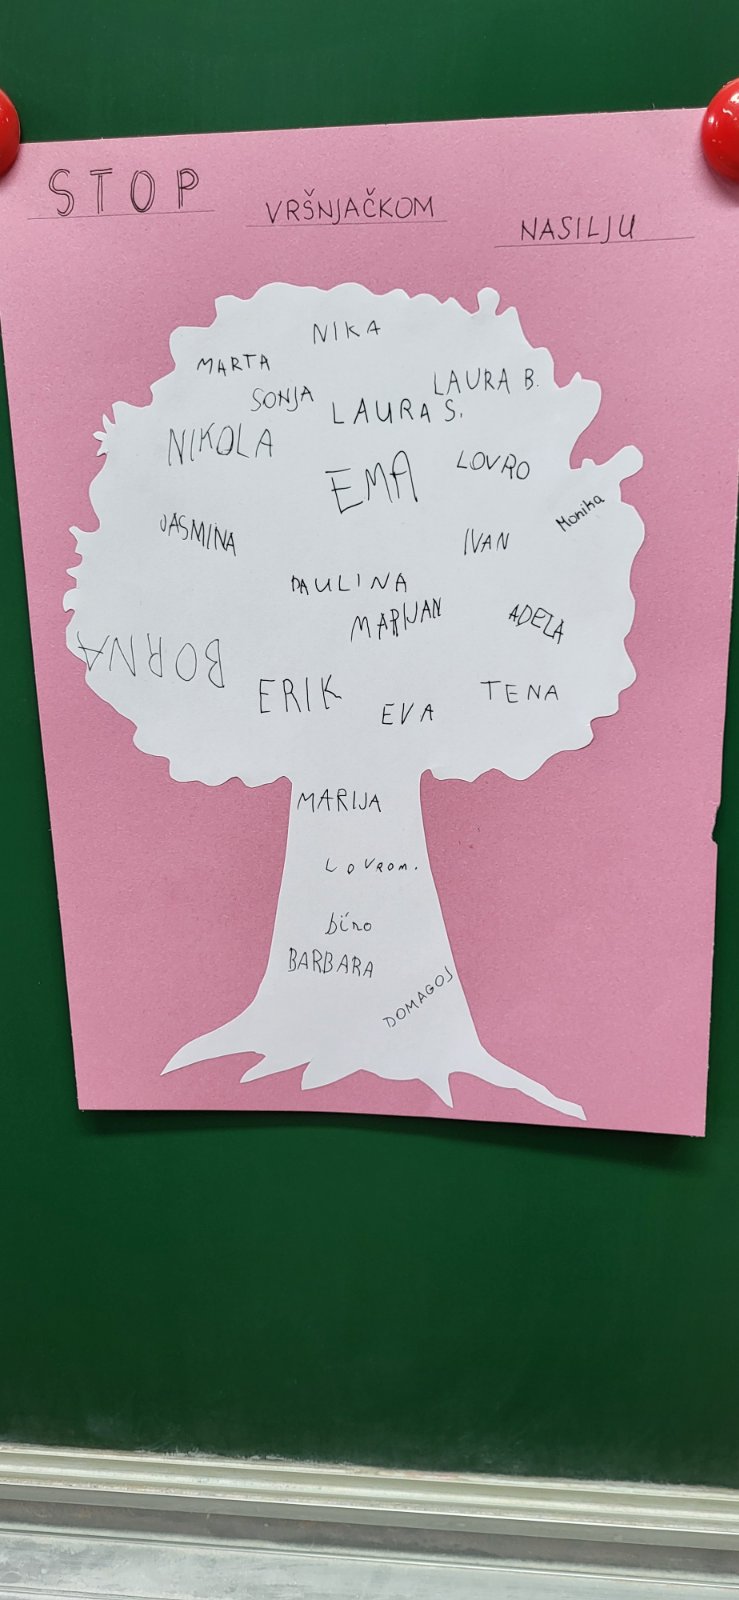 STOP VRŠNJAČKOM NASILJU
NIKA
MARTA
SONJA
LAURA B.
LAURA S.
NIKOLA
EMA
LOVRO
Monika
JASMINA
IVAN
PAULINA
MARIJAN
ADELA
BORNA
ERIK
EVA
TENA
MARIJA
LOVRO M.
BARBARA
DOMAGOJ